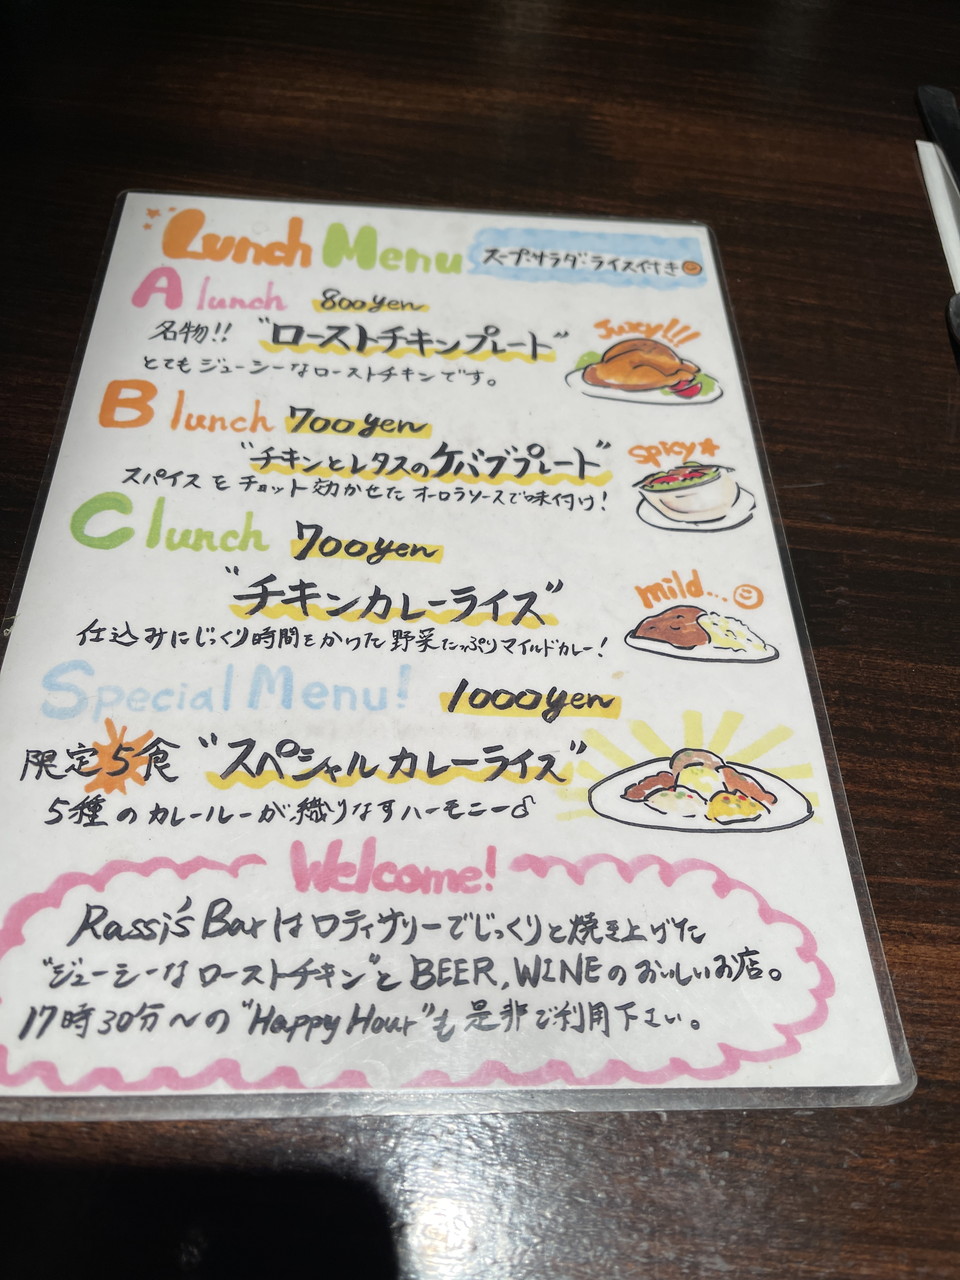 Lunch Menu スープ・サラダ・ライス付き
A lunch 800yen
名物!! "ローストチキンプレート" Juicy!!!
とてもジューシーなローストチキンです。
B lunch 700yen
"チキンとレタスのケバブプレート" Spicy☆
スパイスをチョット効かせたオーロラソースで味付け!
C lunch 700yen
"チキンカレーライス" mild...
仕込みにじっくり時間をかけた野菜たっぷりマイルドカレー!
Special Menu! 1000yen
限定5食 "スペシャルカレーライス"
5種のカレールーが織りなすハーモニー♪
Welcome!
Rassi's Barはロティサリーでじっくりと焼き上げた
"ジューシーなローストチキン"とBEER,WINEのおいしいお店。
17時30分〜の"Happy Hour"も是非ご利用下さい。